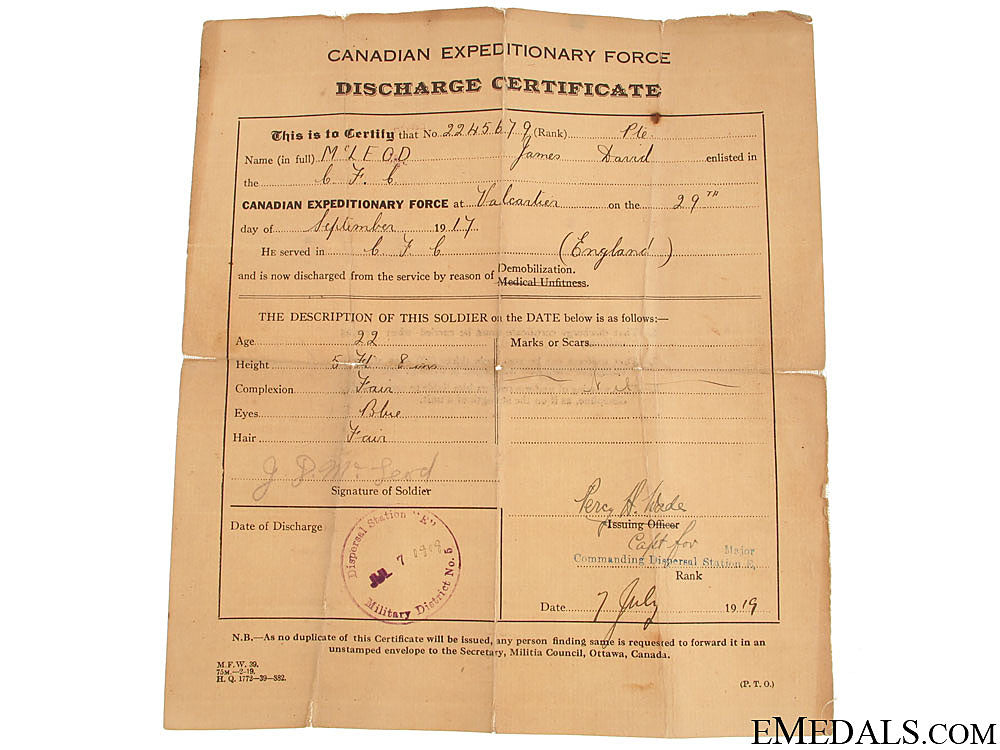 CANADIAN EXPEDITIONARY FORCE
DISCHARGE CERTIFICATE
This is to Certify that No. 2245679 (Rank) Pte
Name (in full) McLEOD James David enlisted in
the C F C
CANADIAN EXPEDITIONARY FORCE at Valcartier on the 29TH
day of September 1917.
HE served in C F C (England)
and is now discharged from the service by reason of Demobilization.
Medical Unfitness.
THE DESCRIPTION OF THIS SOLDIER on the DATE below is as follows:—
Age 22 Marks or Scars
Height 5 ft 8 ins
Complexion Fair Nil
Eyes Blue
Hair Fair
J D McLeod
Signature of Soldier
Percy A. Wade
Issuing Officer
Date of Discharge
Dispersal Station "E"
JUL 7 1919
Military District No. 5
Capt for Major
Commanding Dispersal Station E,
Rank
Date 7 July 1919
N.B.—As no duplicate of this Certificate will be issued, any person finding same is requested to forward it in an
unstamped envelope to the Secretary, Militia Council, Ottawa, Canada.
M.F.W. 39.
75M.—2-19.
H. Q. 1772—39—882.
(P. T. O.)
EMEDALS.COM